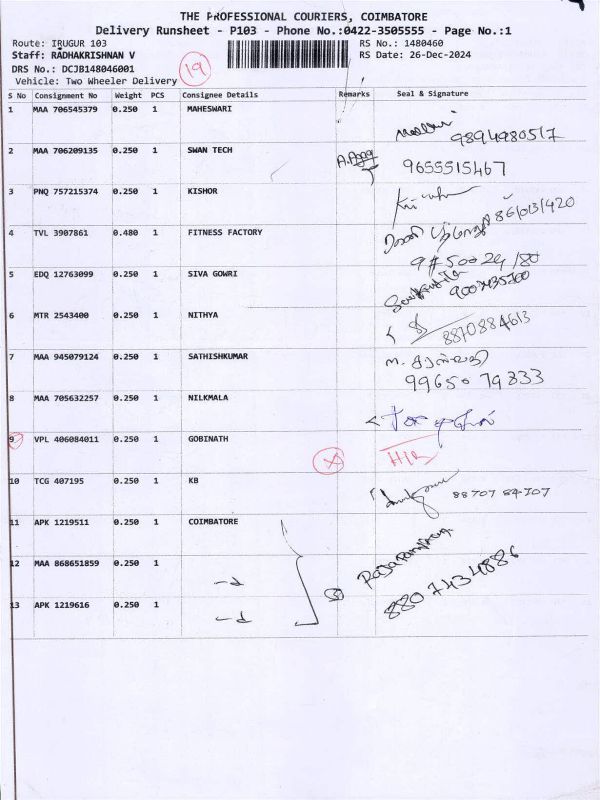 THE PROFESSIONAL COURIERS, COIMBATORE
Delivery Runsheet - P103 - Phone No.:0422-3505555 - Page No.:1
Route: IRUGUR 103 RS No.: 1480460
Staff: RADHAKRISHNAN V RS Date: 26-Dec-2024
DRS No.: DCJB148046001 19
Vehicle: Two Wheeler Delivery
S No Consignment No Weight PCS Consignee Details Remarks Seal & Signature
1 MAA 706545379 0.250 1 MAHESWARI
9894980517
2 MAA 706209135 0.250 1 SWAN TECH
9655515467
3 PNQ 757215374 0.250 1 KISHOR
4 TVL 3907861 0.480 1 FITNESS FACTORY
5 EDQ 12763099 0.250 1 SIVA GOWRI
6 MTR 2543400 0.250 1 NITHYA
8870884613
7 MAA 945079124 0.250 1 SATHISHKUMAR
99650 79833
8 MAA 705632257 0.250 1 NILKMALA
9 VPL 406084011 0.250 1 GOBINATH
10 TCG 407195 0.250 1 KB
88707 84707
11 APK 1219511 0.250 1 COIMBATORE
12 MAA 868651859 0.250 1
8807434886
13 APK 1219616 0.250 1